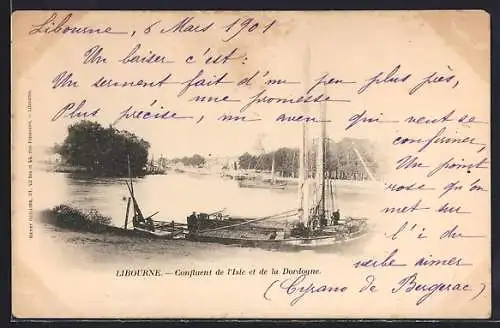 Libourne, 6 Mars 1901
Un baiser c'est :
Un serment fait d'un peu plus près,
une promesse
Plus précise, un aveu qui veut se
confirmer,
Un point
rose qu'on
met sur
l'i du
verbe aimer
(Cyrano de Bergerac)
LIBOURNE. — Confluent de l'Isle et de la Dordogne.